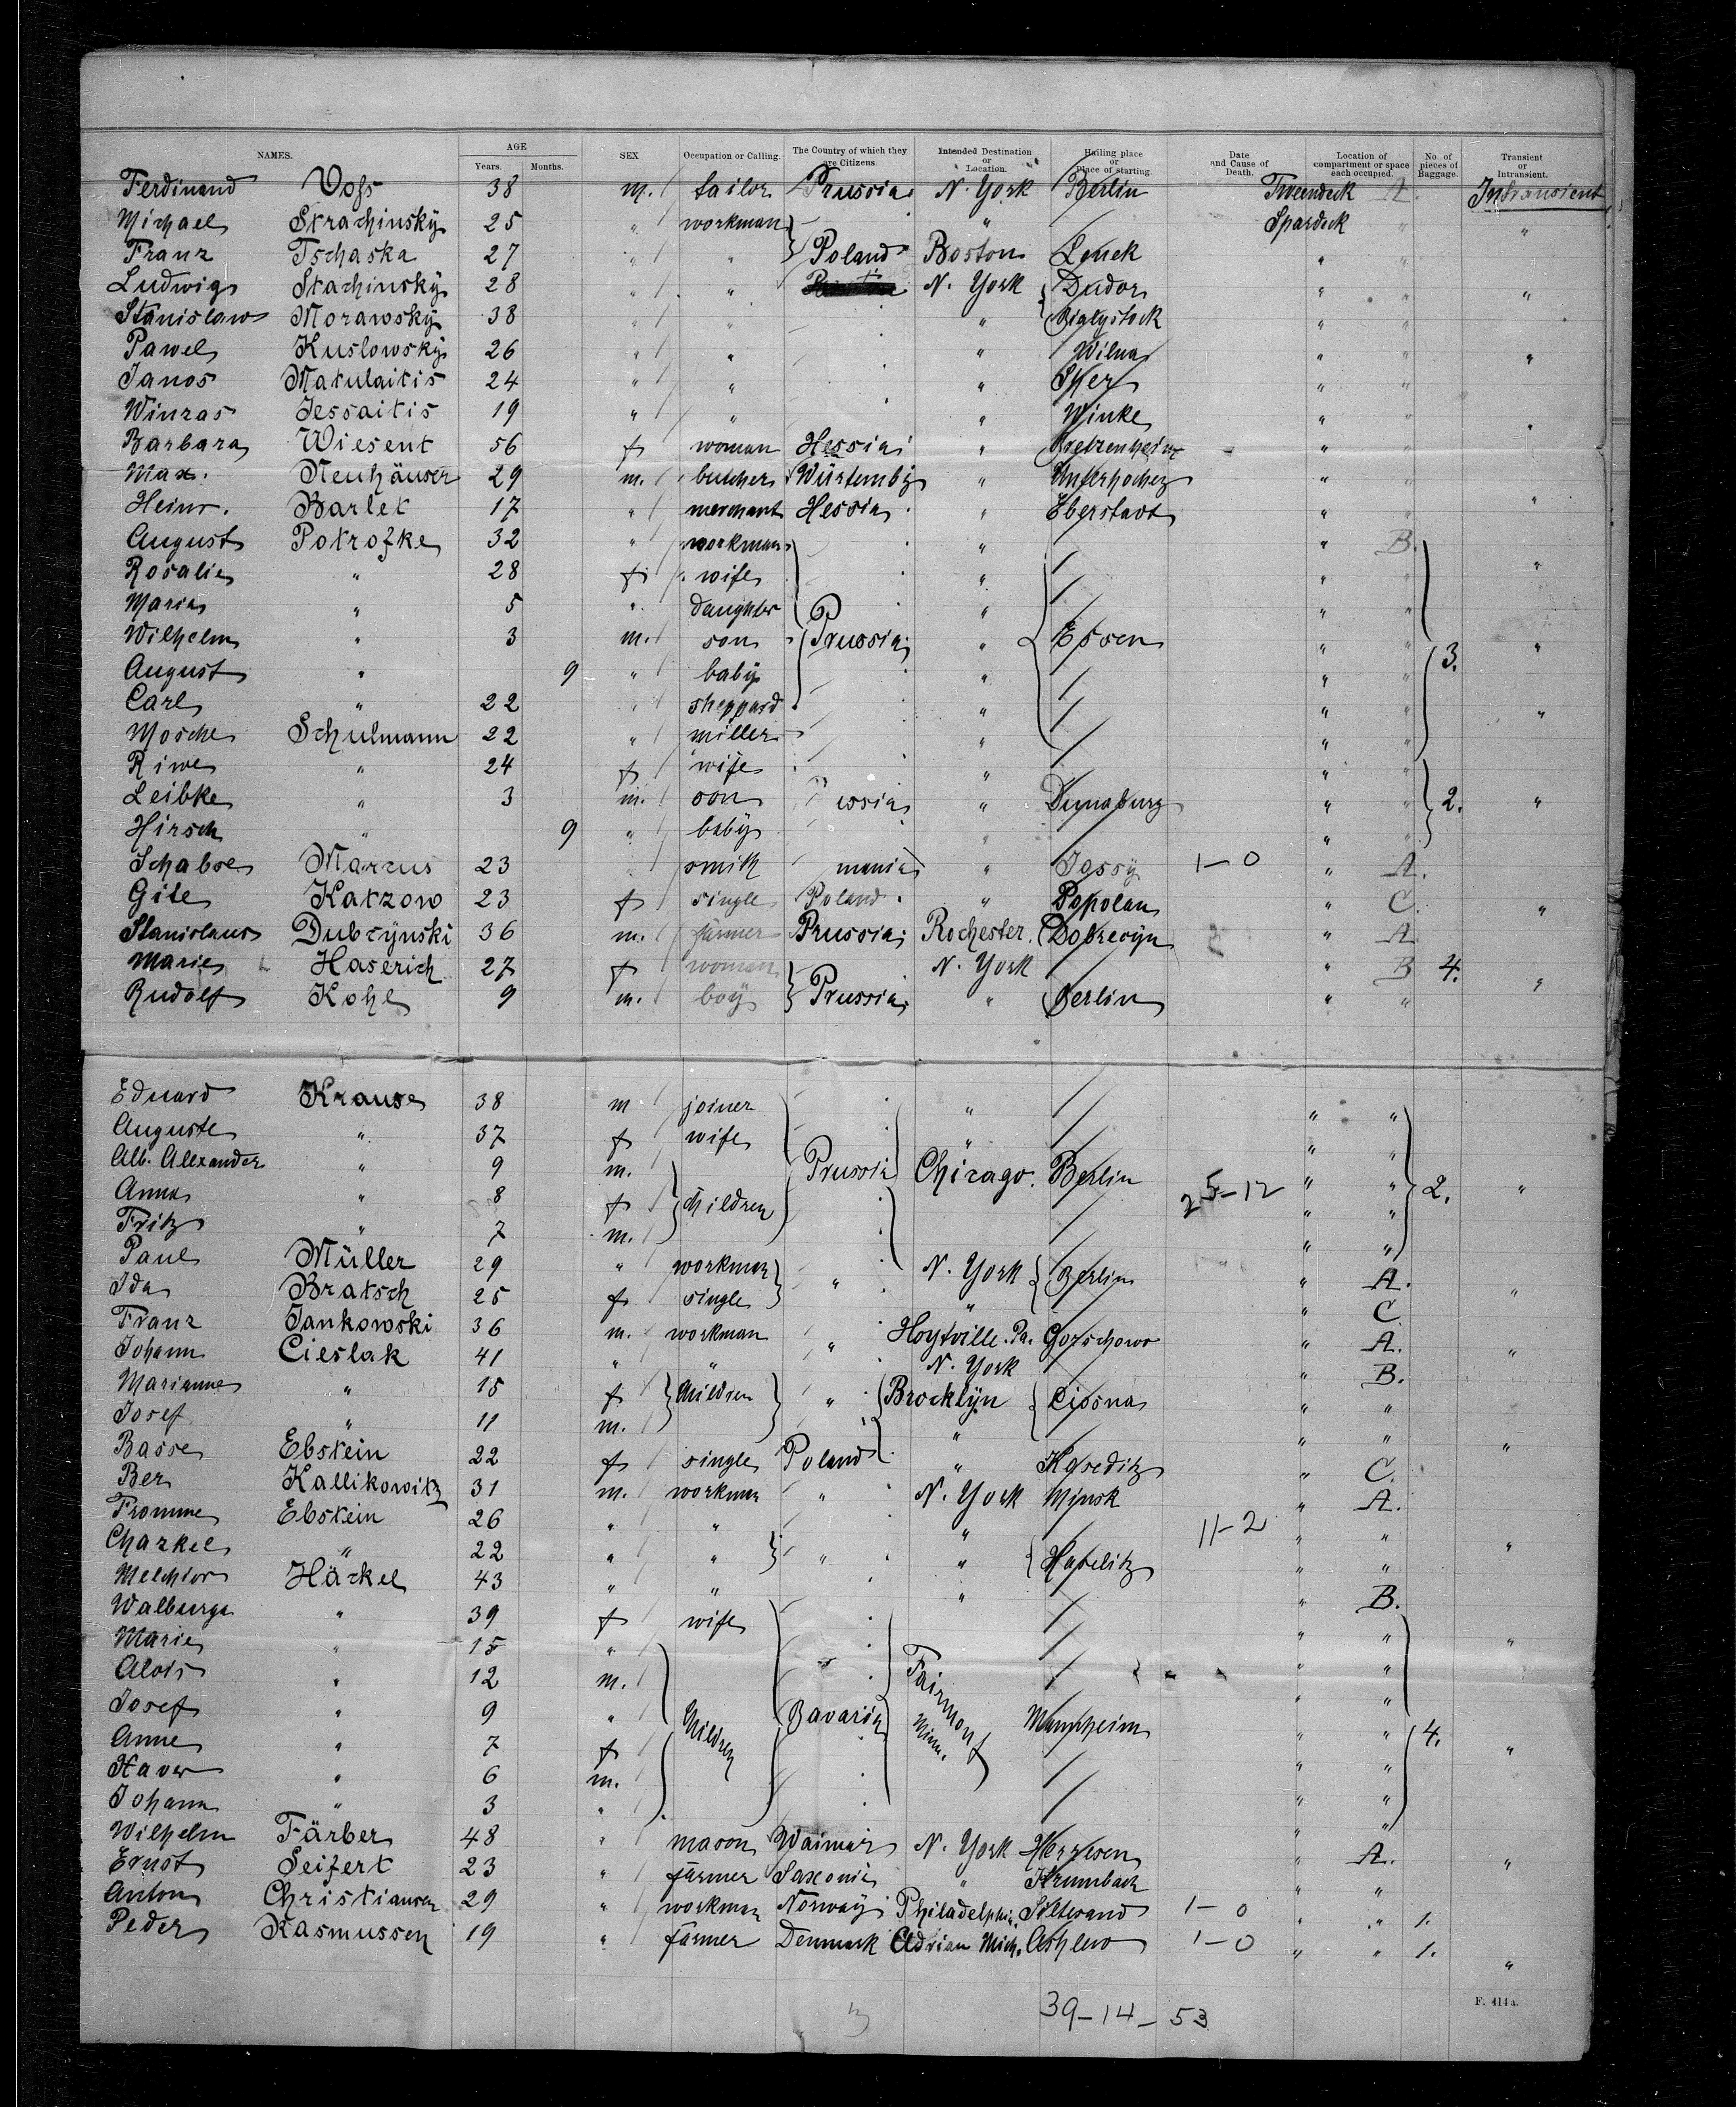 NAMES. AGE Years. Months. SEX Occupation or Calling. The Country of which they are Citizens. Intended Destination or Location. Hailing place or Place of starting. Date and Cause of Death. Location of compartment or space each occupied. No. of pieces of Baggage. Transient or Intransient.
Ferdinand Voss 38 m. tailor Prussia N. York Berlin Tweendeck A. Intransient
Michael Strachinsky 25 " workman " Spardeck " "
Franz Tschaska 27 " " Poland Boston Lenek " "
Ludwig Stachinsky 28 " " N. York Dudor " " "
Stanislaw Morawsky 38 " " " Bialystock " "
Pawel Kuslowsky 26 " " " Wilna " " "
Janos Matulaitis 24 " " " Sker " "
Winzas Jessaitis 19 " " " Winke " " "
Barbara Wiesent 56 f woman Hessia " Bretzenheim " "
Max. Neuhäuser 29 m. butcher Würtembg " " "
Heinr. Barlet 17 " merchant Hessia " Eberstadt " " "
August Potrofke 32 " workman " " B.
Rosalie " 28 f. wife " " " "
Maria " 5 " daughter " " "
Wilhelm " 3 m. son Prussia " Essen " " 3. "
August " 9 " baby " " "
Carl " 22 " sheppard " " " "
Mosche Schulmann 22 " miller " " "
Riwe " 24 f wife " " "
Leibke " 3 m. son ussia " Dunaburg " " 2. "
Hirsch " 9 " baby " " "
Schabse Marcus 23 " smith mania " Jassy 1-0 " A.
Gite Katzow 23 f single Poland " Popolan " C. "
Stanislaus Dubczynski 36 m. farmer Prussia Rochester. Dobrecyn " A
Marie Haserich 27 f woman N. York " B 4.
Rudolf Kohl 9 m. boy Prussia " Berlin " " "
Eduard Krause 38 m joiner " " "
Auguste " 37 f wife " " "
Alb. Alexander " 9 m. Prussia Chicago. Berlin 25-12 " " 2. "
Anna " 8 f children " "
Fritz " 7 m. " "
Paul Müller 29 " workman " N. York Berlin " A. "
Ida Bratsch 25 f single " " C
Franz Jankowski 36 m. workman " Hoytville. Pa. Gorschowo " A. "
Johann Cieslak 41 " " N. York " B.
Marianne " 15 f Children " Brocklyn Cissna " "
Josef " 11 m. " " " "
Basse Ebstein 22 f single Poland " Koseditz " C.
Ber Kallikowitz 31 m. workman " N. York Minsk " A.
Fromme Ebstein 26 " " " 11-2 " " "
Chazkel " 22 " " " " Hatelitz " "
Melchior Häckel 43 " " " " B.
Walburga " 39 f wife " " "
Marie " 15 " " "
Alois " 12 m. " "
Josef " 9 " Children Bavaria Fairmont Minn. Mannheim " " 4. "
Anne " 7 f " "
Xaver " 6 m. " "
Johann " 3 " " "
Wilhelm Färber 48 " mason Waimar N. York Herresen " A. "
Ernst Seifert 23 " farmer Saxonia " Krumbach " "
Anton Christiansen 29 " workman Norway Philadelphia. Silterand 1-0 " " 1.
Peder Rasmussen 19 " farmer Denmark Adrian Mich. Ashlew 1-0 " " 1. "
39-14-53
F. 414a.